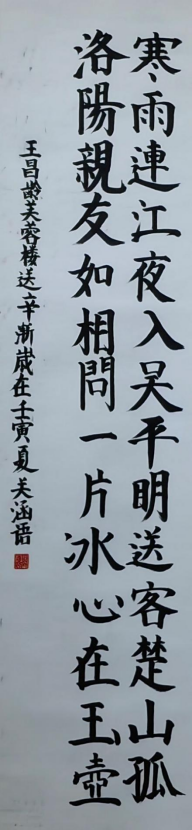 寒雨連江夜入吴平明送客楚山孤
洛陽親友如相問一片冰心在玉壺
王昌齡芙蓉楼送辛渐歲在壬寅夏关涵语